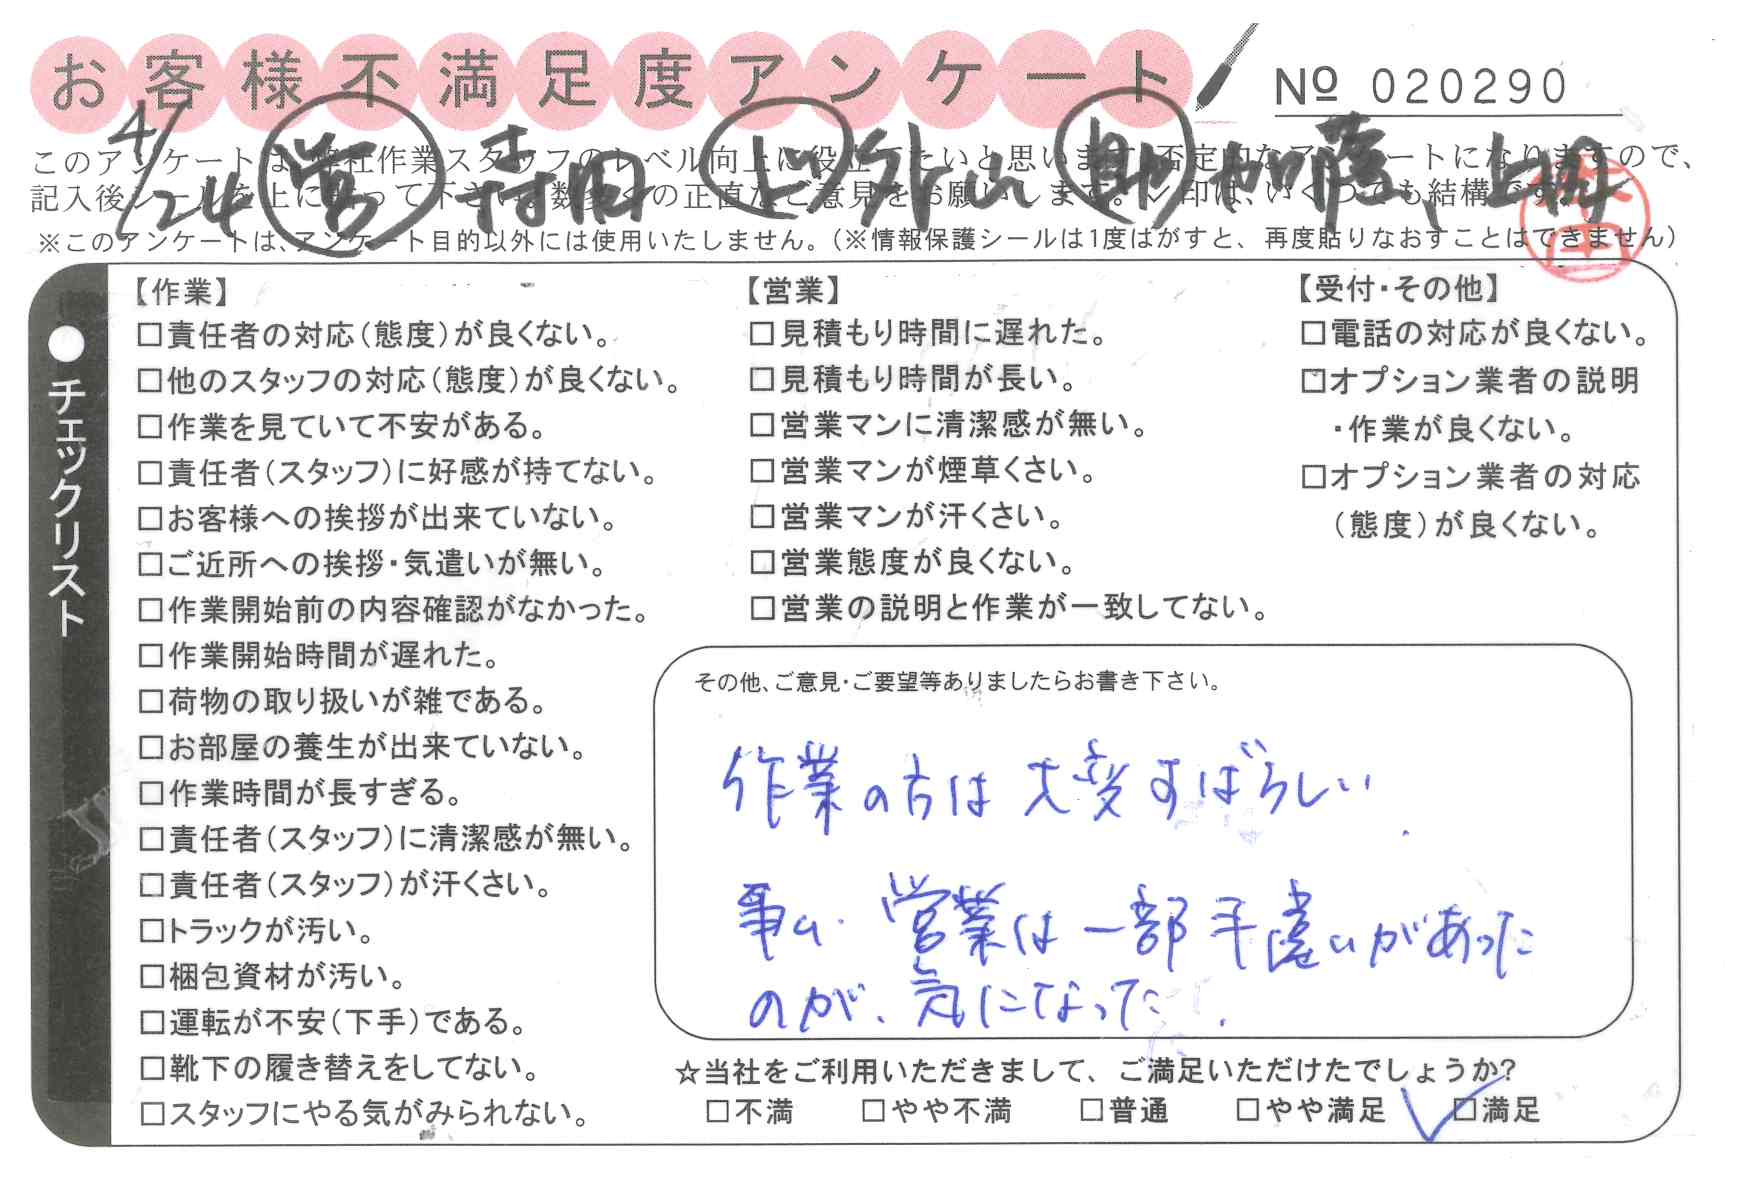 お客様不満足度アンケート
№ 020290
4/24 営 寺田 上 外山 助 加藤、上棚
このアンケートは、弊社作業スタッフのレベル向上に役立てたいと思います。否定的なアンケートになりますので、
記入後シールを上にはって下さい。数多くの正直なご意見をお願いします。✓印は、いくつでも結構です。
※このアンケートは、アンケート目的以外には使用いたしません。(※情報保護シールは1度はがすと、再度貼りなおすことはできません)
●チェックリスト
【作業】
□責任者の対応(態度)が良くない。
□他のスタッフの対応(態度)が良くない。
□作業を見ていて不安がある。
□責任者(スタッフ)に好感が持てない。
□お客様への挨拶が出来ていない。
□ご近所への挨拶・気遣いが無い。
□作業開始前の内容確認がなかった。
□作業開始時間が遅れた。
□荷物の取り扱いが雑である。
□お部屋の養生が出来ていない。
□作業時間が長すぎる。
□責任者(スタッフ)に清潔感が無い。
□責任者(スタッフ)が汗くさい。
□トラックが汚い。
□梱包資材が汚い。
□運転が不安(下手)である。
□靴下の履き替えをしてない。
□スタッフにやる気がみられない。
【営業】
□見積もり時間に遅れた。
□見積もり時間が長い。
□営業マンに清潔感が無い。
□営業マンが煙草くさい。
□営業マンが汗くさい。
□営業態度が良くない。
□営業の説明と作業が一致してない。
【受付・その他】
□電話の対応が良くない。
□オプション業者の説明
・作業が良くない。
□オプション業者の対応
(態度)が良くない。
その他、ご意見・ご要望等ありましたらお書き下さい。
作業の方は大変すばらしい.
営業は一部手違いがあった
のが、気になった.
☆当社をご利用いただきまして、ご満足いただけたでしょうか?
□不満 □やや不満 □普通 □やや満足 □満足